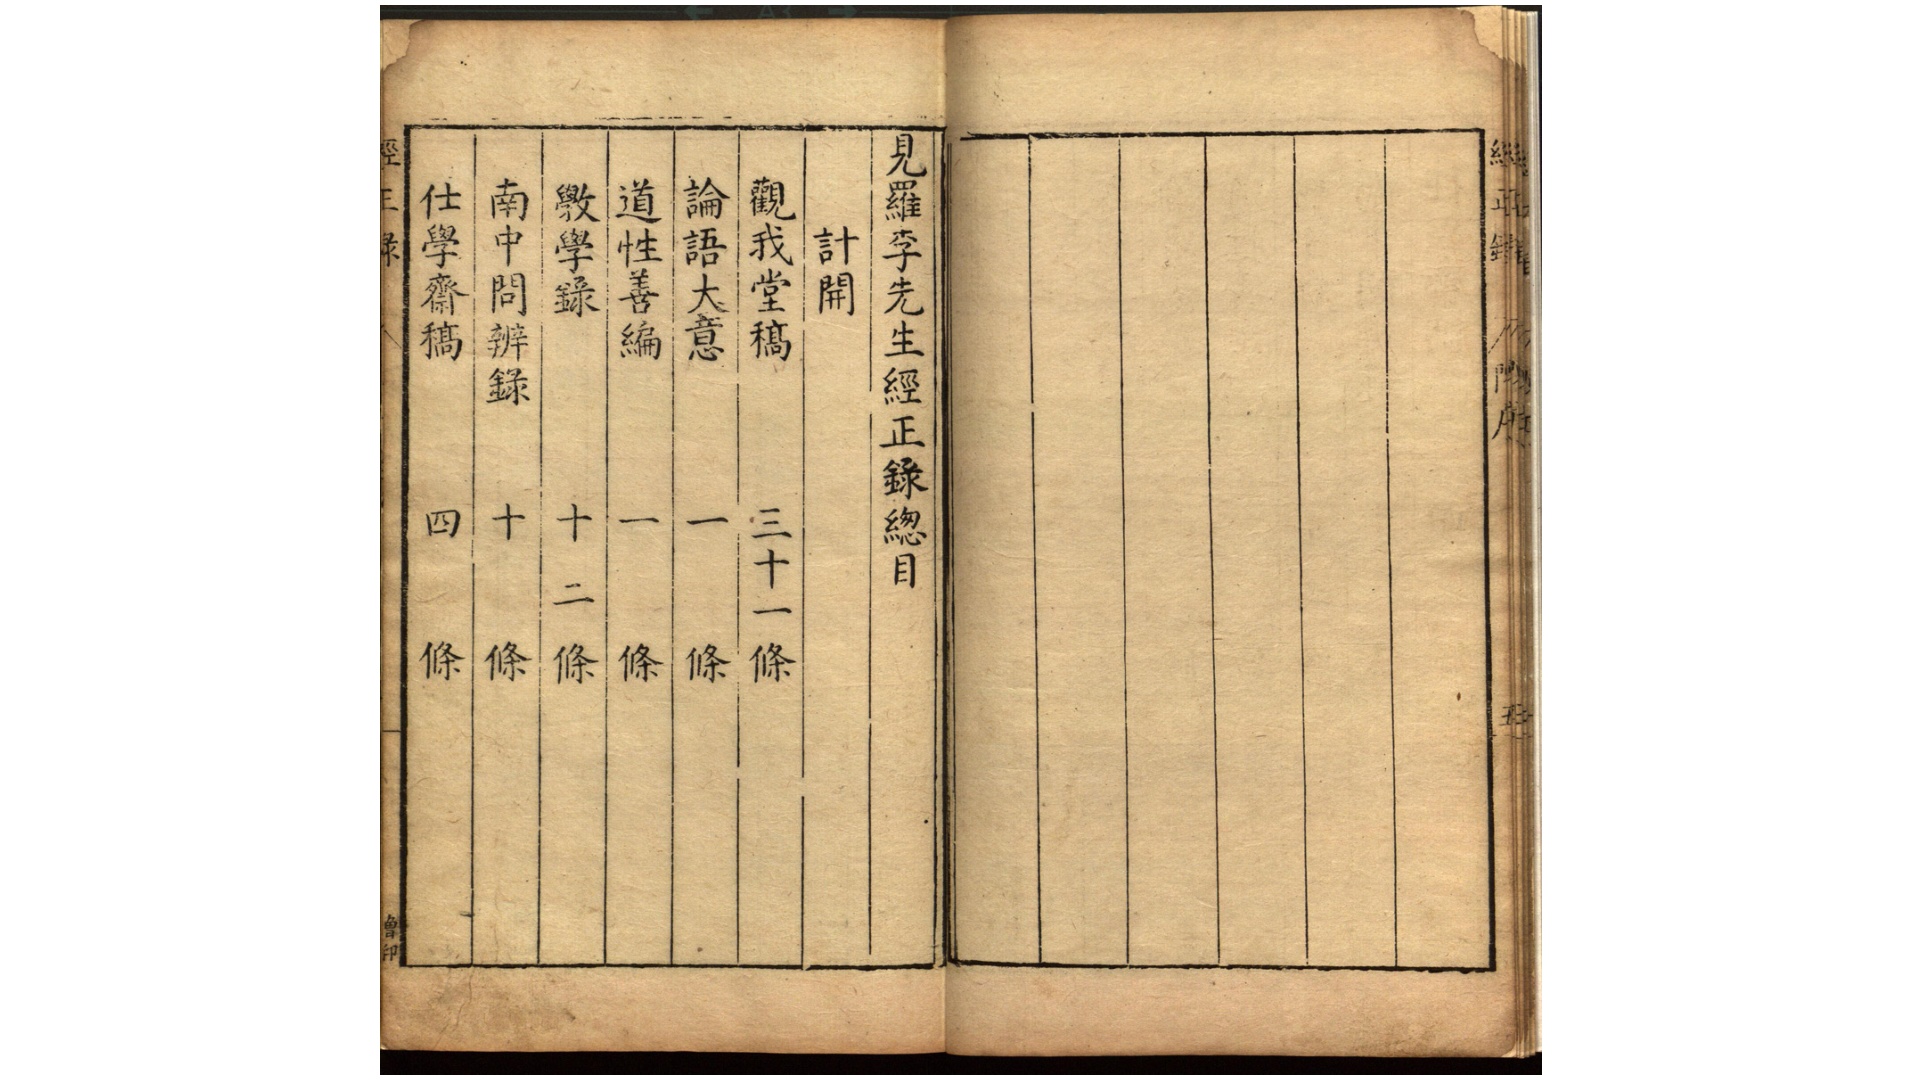 見羅李先生經正錄緫目
計開
觀我堂稿 三十一條
論語大意 一條
道性善編 一條
斆學錄 十二條
南中問辨錄 十條
仕學齋稿 四條